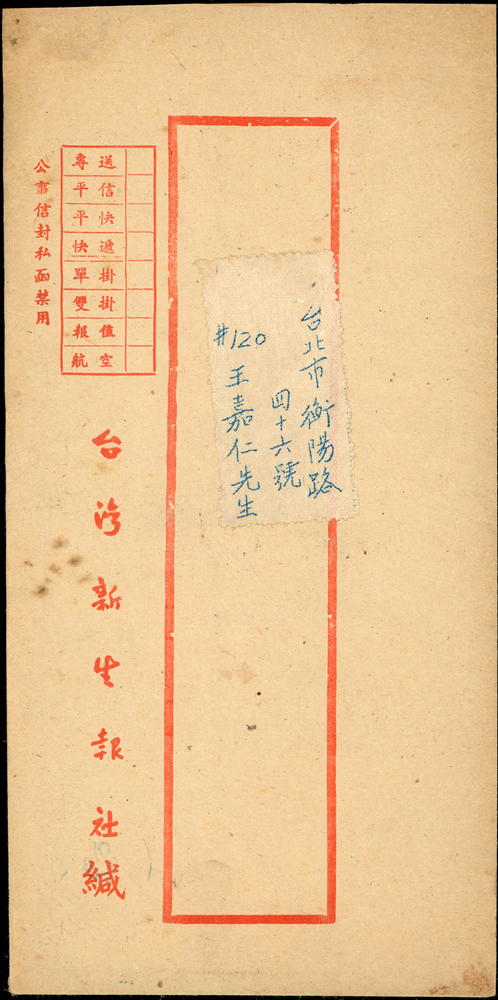 台北市衡陽路
四十六號
#120 王嘉仁先生
送信快遞掛掛值空
專平平快單雙報航
公事信封私函禁用
台灣新生報社緘